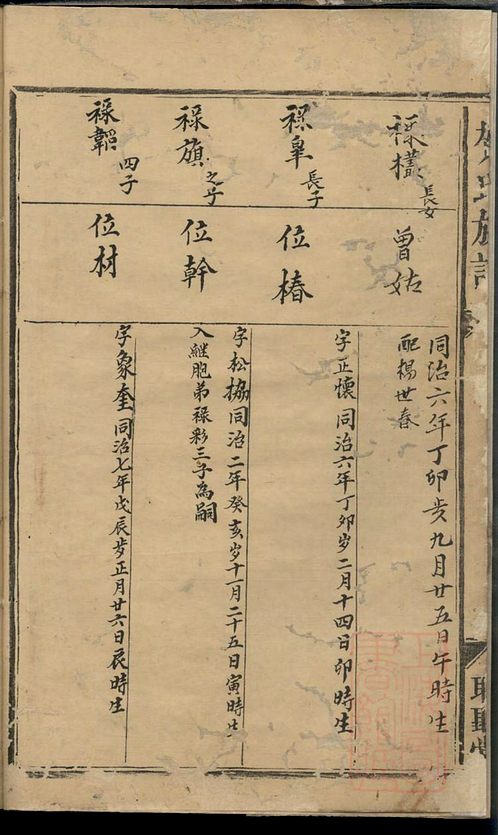 族譜
祿構
長女
曾姑
同治六年丁卯歩九月廿五日午時生
配楊世春
祿臯
長子
位椿
字正懷同治六年丁卯岁二月十四日卯時生
祿旗
之子
位幹
字松協同治二年癸亥岁十一月二十五日寅時生
入継胞弟祿彩三子為嗣
祿韜
四子
位材
字象奎同治七年戊辰歩正月廿六日辰時生